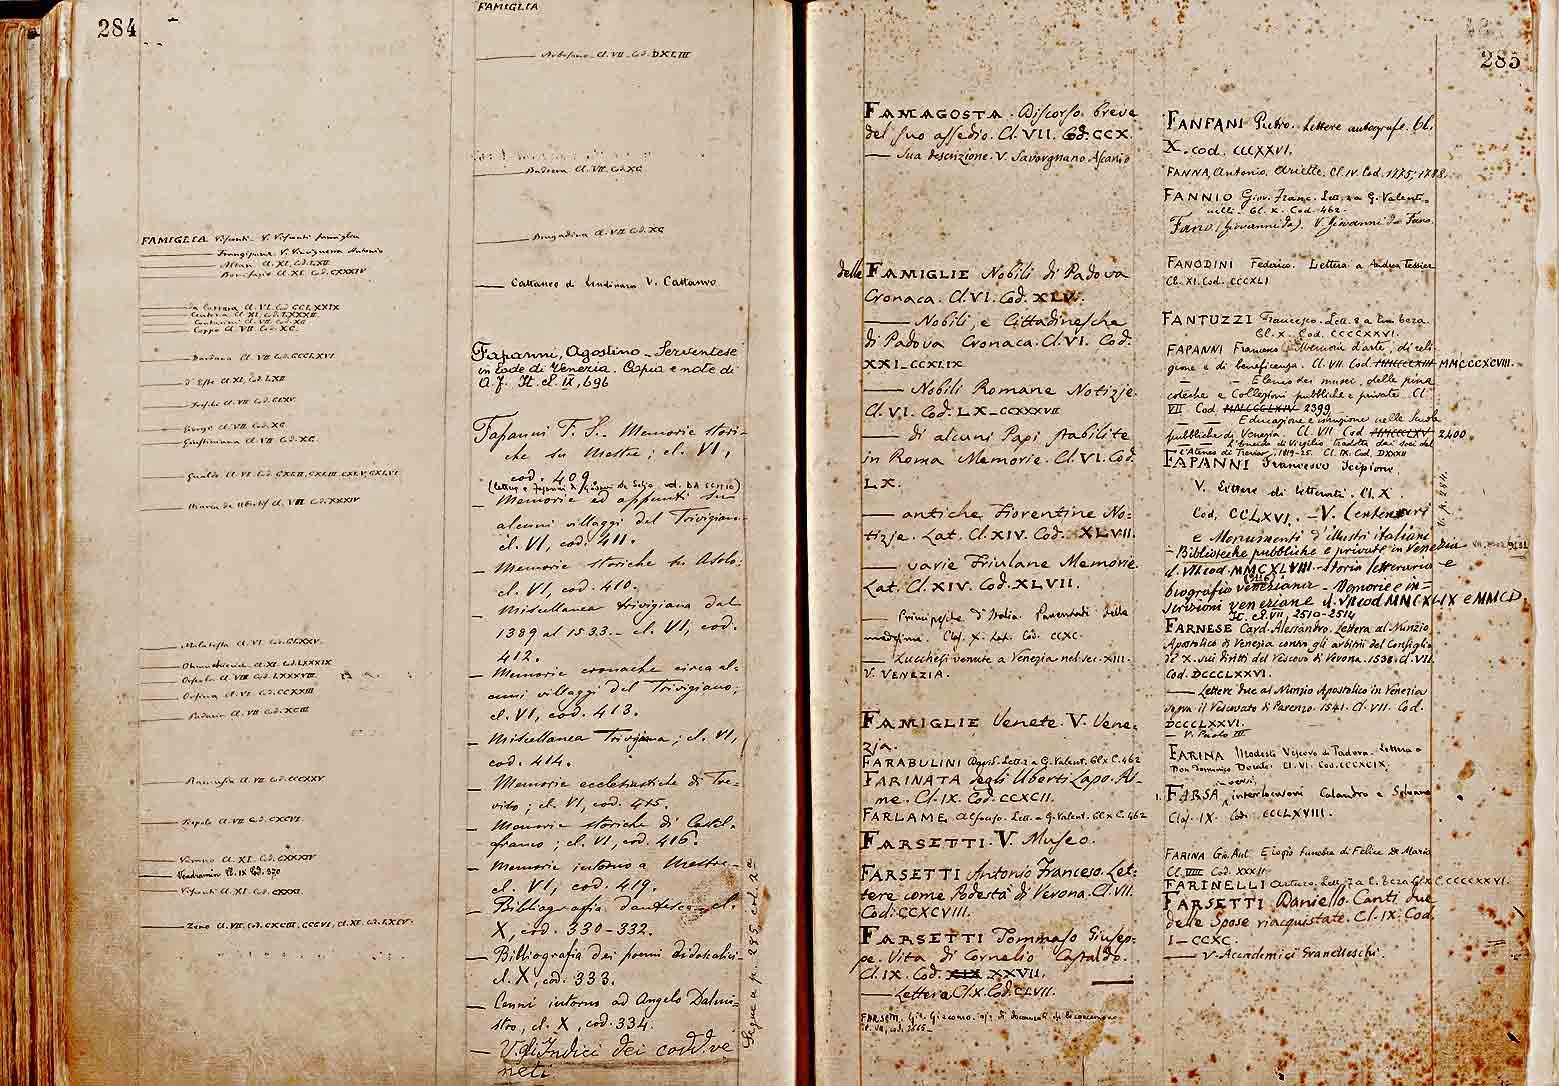 284
FAMIGLIA Visconti - V. Visconti famiglia
Frangipane V. Vinciguerra Antonio
Altan Cl. XI. Cod. LXII
Bonifazio Cl. XI. Cod. CXXXIV
da Carrara Cl. VI. Cod. CCLXXIX
Contarini Cl. VII. Cod. XC
Coppo Cl. VII. Cod. XC.
Barbaro Cl. VII Cod. CCCLXVI
d'Este Cl. XI. Cod. LXII
Giorgi Cl. VII. Cod. XC
Giustiniana Cl. VII. Cod. XC
Gualdo Cl. VI. Cod. CXLII, CXLIII, CXLV, CXLVI
Malatesta Cl. VI. Cod. CCXXV.
Orsina Cl. VI. Cod. CCXXIII
Tiepolo Cl. VII Cod. CXCVI
Vendramin Cl. IX Cod. 370
Visconti Cl. XI. Cod. CXXXI.
Zeno Cl. VII. Cod. CXCIII, CCCVI, Cl. XI. Cod. LXIV.
FAMIGLIA
Cl. VII. Cod. DXLIII
Badoera Cl. VII. Cod. XC
Bragadina Cl. VII. Cod. XC
Cattaneo di Lendinara V. Cattaneo
Fapanni, Agostino - Serventese
in lode di Venezia. Copia e note di
A. F. It. cl. IX, 696
Fapanni F. S. - Memorie stori-
che su Mestre; cl. VI,
cod. 409
— Memorie ed appunti su
alcuni villaggi del Trivigiano
cl. VI, cod. 411.
— Memorie storiche su Asolo;
cl. VI, cod. 410.
— Miscellanea trivigiana dal
1389 al 1533. - cl. VI, cod.
412.
— Memorie cronache circa al-
cuni villaggi del Trivigiano;
cl. VI, cod. 413.
— Miscellanea Trivigiana; cl. VI,
cod. 414.
— Memorie ecclesiastiche di Tre-
viso; cl. VI, cod. 415.
— Memorie storiche di Castel-
franco; cl. VI, cod. 416.
— Memorie intorno a Mestre -
cl. VI, cod. 419.
— Bibliografia dantesca - cl.
X, cod. 330-332.
— Bibliografia dei poemi didascalici
cl. X, cod. 333.
— Cenni intorno ad Angelo Dalmi-
stro, cl. X, cod. 334.
— V. gli Indici dei codd. ve
neti.
Segue a p. 285 col. 2a
285
FAMAGOSTA. Discorso breve
del suo assedio. Cl. VII. Cod. CCX.
— Sua descrizione. V. Savorgnano Ascanio
delle FAMIGLIE Nobili di Padova
Cronaca. Cl. VI. Cod. XLV.
— Nobili, e Cittadinesche
di Padova Cronaca. Cl. VI. Cod.
XXI_CCXLIX
— Nobili Romane Notizie.
Cl. VI. Cod. LX_CCXXXVII
— di alcuni Papi stabilite
in Roma Memorie. Cl. VI. Cod.
LX.
— antiche Fiorentine No:
tizie. Lat. Cl. XIV. Cod. XLVII.
— varie Friulane Memorie.
Lat. Cl. XIV. Cod. XLVII.
— Principesche d'Italia Parentadi delle
medesime. Clas. X. Lat. Cod. CCXC.
— Lucchesi venute a Venezia nel sec. XIII.
V. VENEZIA.
FAMIGLIE Venete. V. Vene-
zia.
FARABULINI David. Lett. 2 a G. Valent. Cl. X C. 462
FARINATA degli Uberti Lapo. Ri-
me. Cl. IX. Cod. CCXCII.
FARLAME Alfonso. Lett. a G. Valent. Cl. X C. 462
FARSETTI. V. Museo.
FARSETTI Antonio Francesco. Let-
tere come Podestà di Verona. Cl. VII.
Cod. CCXCVIII.
FARSETTI Tommaso Giusep-
pe. Vita di Cornelio Castaldo.
Cl. IX. Cod. XIX XXVII.
— Lettera Cl. X. Cod. CLVII.
FANFANI Pietro. Lettere autografe. Cl.
X. cod. CCCXXVI.
FANNA, Antonio. Ariette. Cl. IV. Cod. 1775; 1788.
FANNIO Giov. Franc. Lett. 2 a G. Valenti-
nelli. Cl. X. Cod. 462.
Fano (Giovanni da). V. Giovanni da Fano.
FANODINI Federico. Lettera a Andrea Tessier
Cl. XI. Cod. CCCXLI
FANTUZZI Francesco. Lett. 8 a Em. Teza.
Cl. X. Cod. CCCCXXVI.
FAPANNI Francesco Memorie d'arte, di reli-
gione e di beneficenza. Cl. VII. Cod. MMCCCXCVIII.
— — Elenco dei musei, delle pina
coteche e Collezioni pubbliche e private Cl
VII Cod. MMCCCLXIV 2399
— — Educazione e istruzione nelle Scuole
pubbliche di Venezia. Cl. VII Cod. MMCCCLXV 2400.
— L'Eneide di Virgilio tradotta dai soci del
l'Ateneo di Treviso, 1819-25. Cl. IX. Cod. DXXXII
FAPANNI Francesco Scipione.
V. Lettere di Letterati. Cl. X.
Cod. CCLXVI. - V. Centenari
e Monumenti d'illustri italiani
V. p. 284.
- Biblioteche pubbliche e private in Venezia
cl. VII cod. MMCXLVIII - Storia letteraria e
biografia veneziana - Memorie e in=
scrizioni veneziane cl. VII cod MMCXLIX e MMCD
It. cl. VII, 2510-2514
FARNESE Card. Alessandro. Lettera al Nunzio
Apostolico di Venezia contro gli arbitrii del Consiglio
de' X. sui diritti del Vescovo di Verona. 1538. Cl. VII.
Cod. DCCCLXXVI.
— Lettere due al Nunzio Apostolico in Venezia
sopra il Vescovato di Parenzo. 1541. Cl. VII. Cod.
DCCCCLXXVI.
— V. Paolo III
FARINA Modesto Vescovo di Padova. Lettera a
Don Tommaso Cl. VI. Cod. CCCXCIX.
FARSA, interlocutori Calandro e Silvano
Clas. IX. Cod. CCCLXVIII.
FARINA Gio. Ant. Elogio funebre di Felice De Maria
Cod. XXXII.
FARINELLI Arturo. Lett. 7 a E. Teza Cl. X C. CCCCXXVI.
FARSETTI Daniello. Canti due
delle Spose riacquistate. Cl. IX. Cod.
I_CCXC.
— V. Academici Granelleschi.